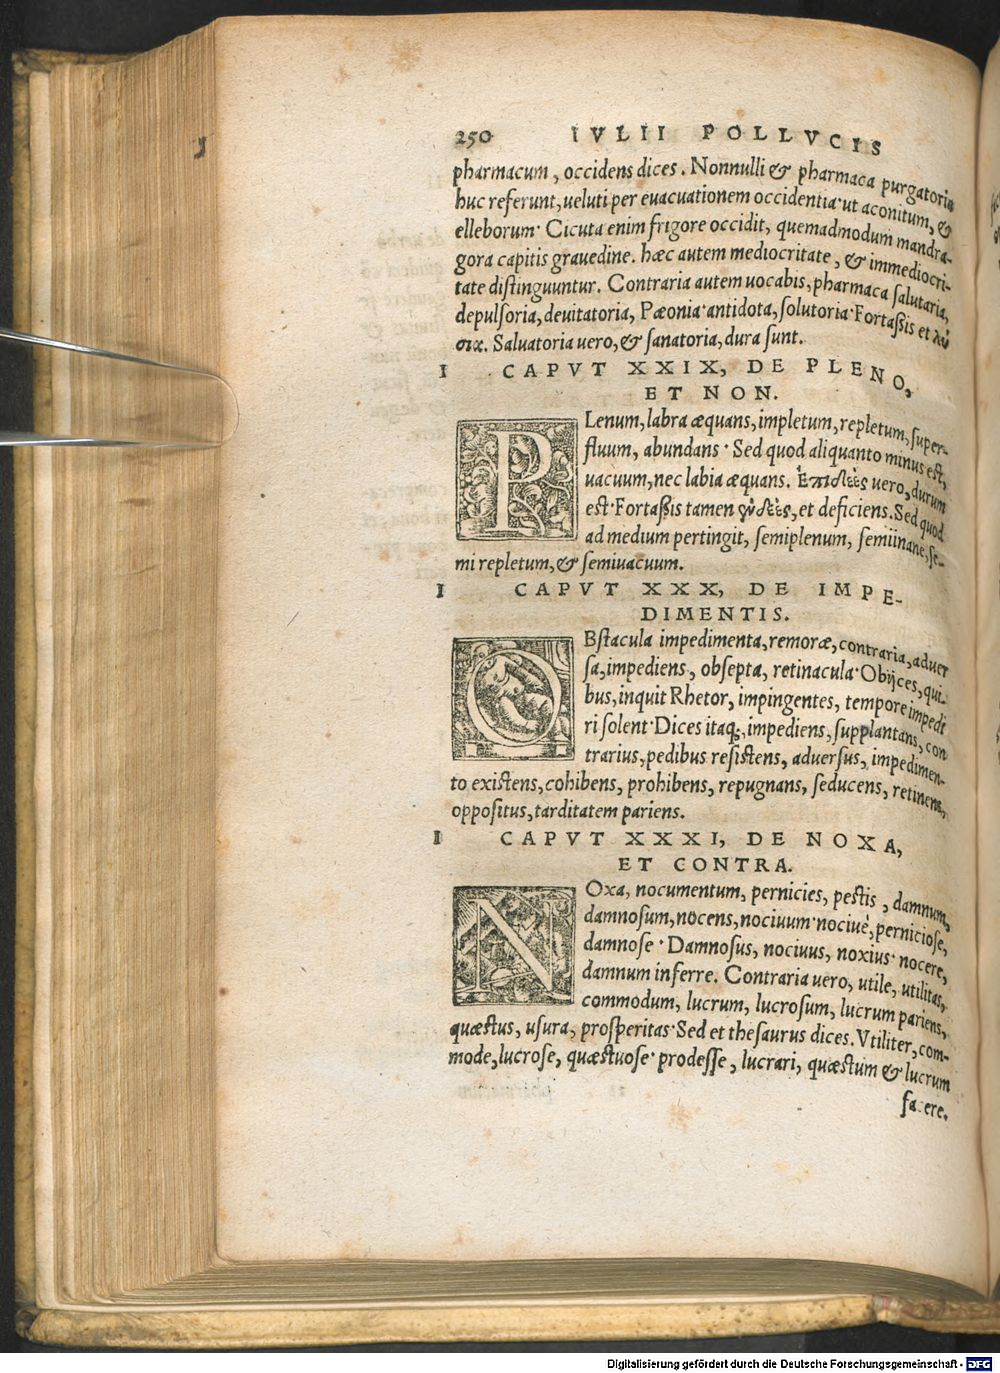 250 IVLII POLLVCIS
pharmacum, occidens dices. Nonnulli & pharmaca purgatoria
huc referunt, ueluti per euacuationem occidentia· ut aconitum, &
elleborum· Cicuta enim frigore occidit, quemadmodum mandra-
gora capitis grauedine. hæc autem mediocritate, & immediocri-
tate distinguuntur. Contraria autem uocabis, pharmaca salutaria,
depulsoria, deuitatoria, Pæonia· antidota, solutoria· Fortassis et λύ
σιχ. Saluatoria uero, & sanatoria, dura sunt.
I CAPVT XXIX, DE PLENO,
ET NON.
PLenum, labra æquans, impletum, repletum, super-
fluum, abundans· Sed quod aliquanto minus est,
uacuum, nec labia æquans. Ἐπιδεὲς uero, durum
est· Fortassis tamen ὑποδεὲς, et deficiens. Sed quod
ad medium pertingit, semiplenum, semiinane, se-
mi repletum, & semiuacuum.
I CAPVT XXX, DE IMPE-
DIMENTIS.
OBstacula impedimenta, remoræ, contraria, aduer
sa, impediens, obsepta, retinacula· Obijces, qui-
bus, inquit Rhetor, impingentes, tempore impedi
ri solent· Dices itaq;, impediens, supplantans, con
trarius, pedibus resistens, aduersus, impedimen-
to existens, cohibens, prohibens, repugnans, seducens, retinens,
oppositus, tarditatem pariens.
I CAPVT XXXI, DE NOXA,
ET CONTRA.
NOxa, nocumentum, pernicies, pestis, damnum,
damnosum, nocens, nociuum· nociuè, perniciose,
damnose· Damnosus, nociuus, noxius· nocere,
damnum inferre. Contraria uero, utile, utilitas,
commodum, lucrum, lucrosum, lucrum pariens,
quæstus, usura, prosperitas· Sed et thesaurus dices. Vtiliter, com-
mode, lucrose, quæstuose· prodesse, lucrari, quæstum & lucrum
facere.
Digitalisierung gefördert durch die Deutsche Forschungsgemeinschaft - DFG